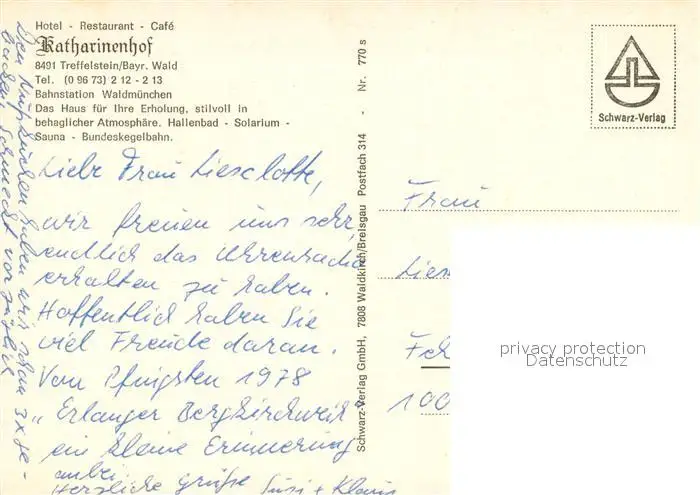 Hotel - Restaurant - Café
Katharinenhof
8491 Treffelstein/Bayr. Wald
Tel. (0 96 73) 2 12 - 2 13
Bahnstation Waldmünchen
Das Haus für Ihre Erholung, stilvoll in
behaglicher Atmosphäre. Hallenbad - Solarium -
Sauna - Bundeskegelbahn.
Liebe Frau Lieselotte,
wir freuen uns sehr,
endlich das
erhalten zu haben.
Hoffentlich haben Sie
viel Freude daran.
Von Pfingsten 1978
"Erlanger Bergkirchweih
ein kleine Erinnerung
anbei.
Herzliche Grüße Susi + Klaus
haben wir schon 3x ge-
backen, schmeckt vorzüglich
Schwarz-Verlag GmbH, 7808 Waldkirch/Breisgau Postfach 314 - Nr. 770 s
Schwarz-Verlag
Frau
Lies
Feh
100
privacy protection
Datenschutz